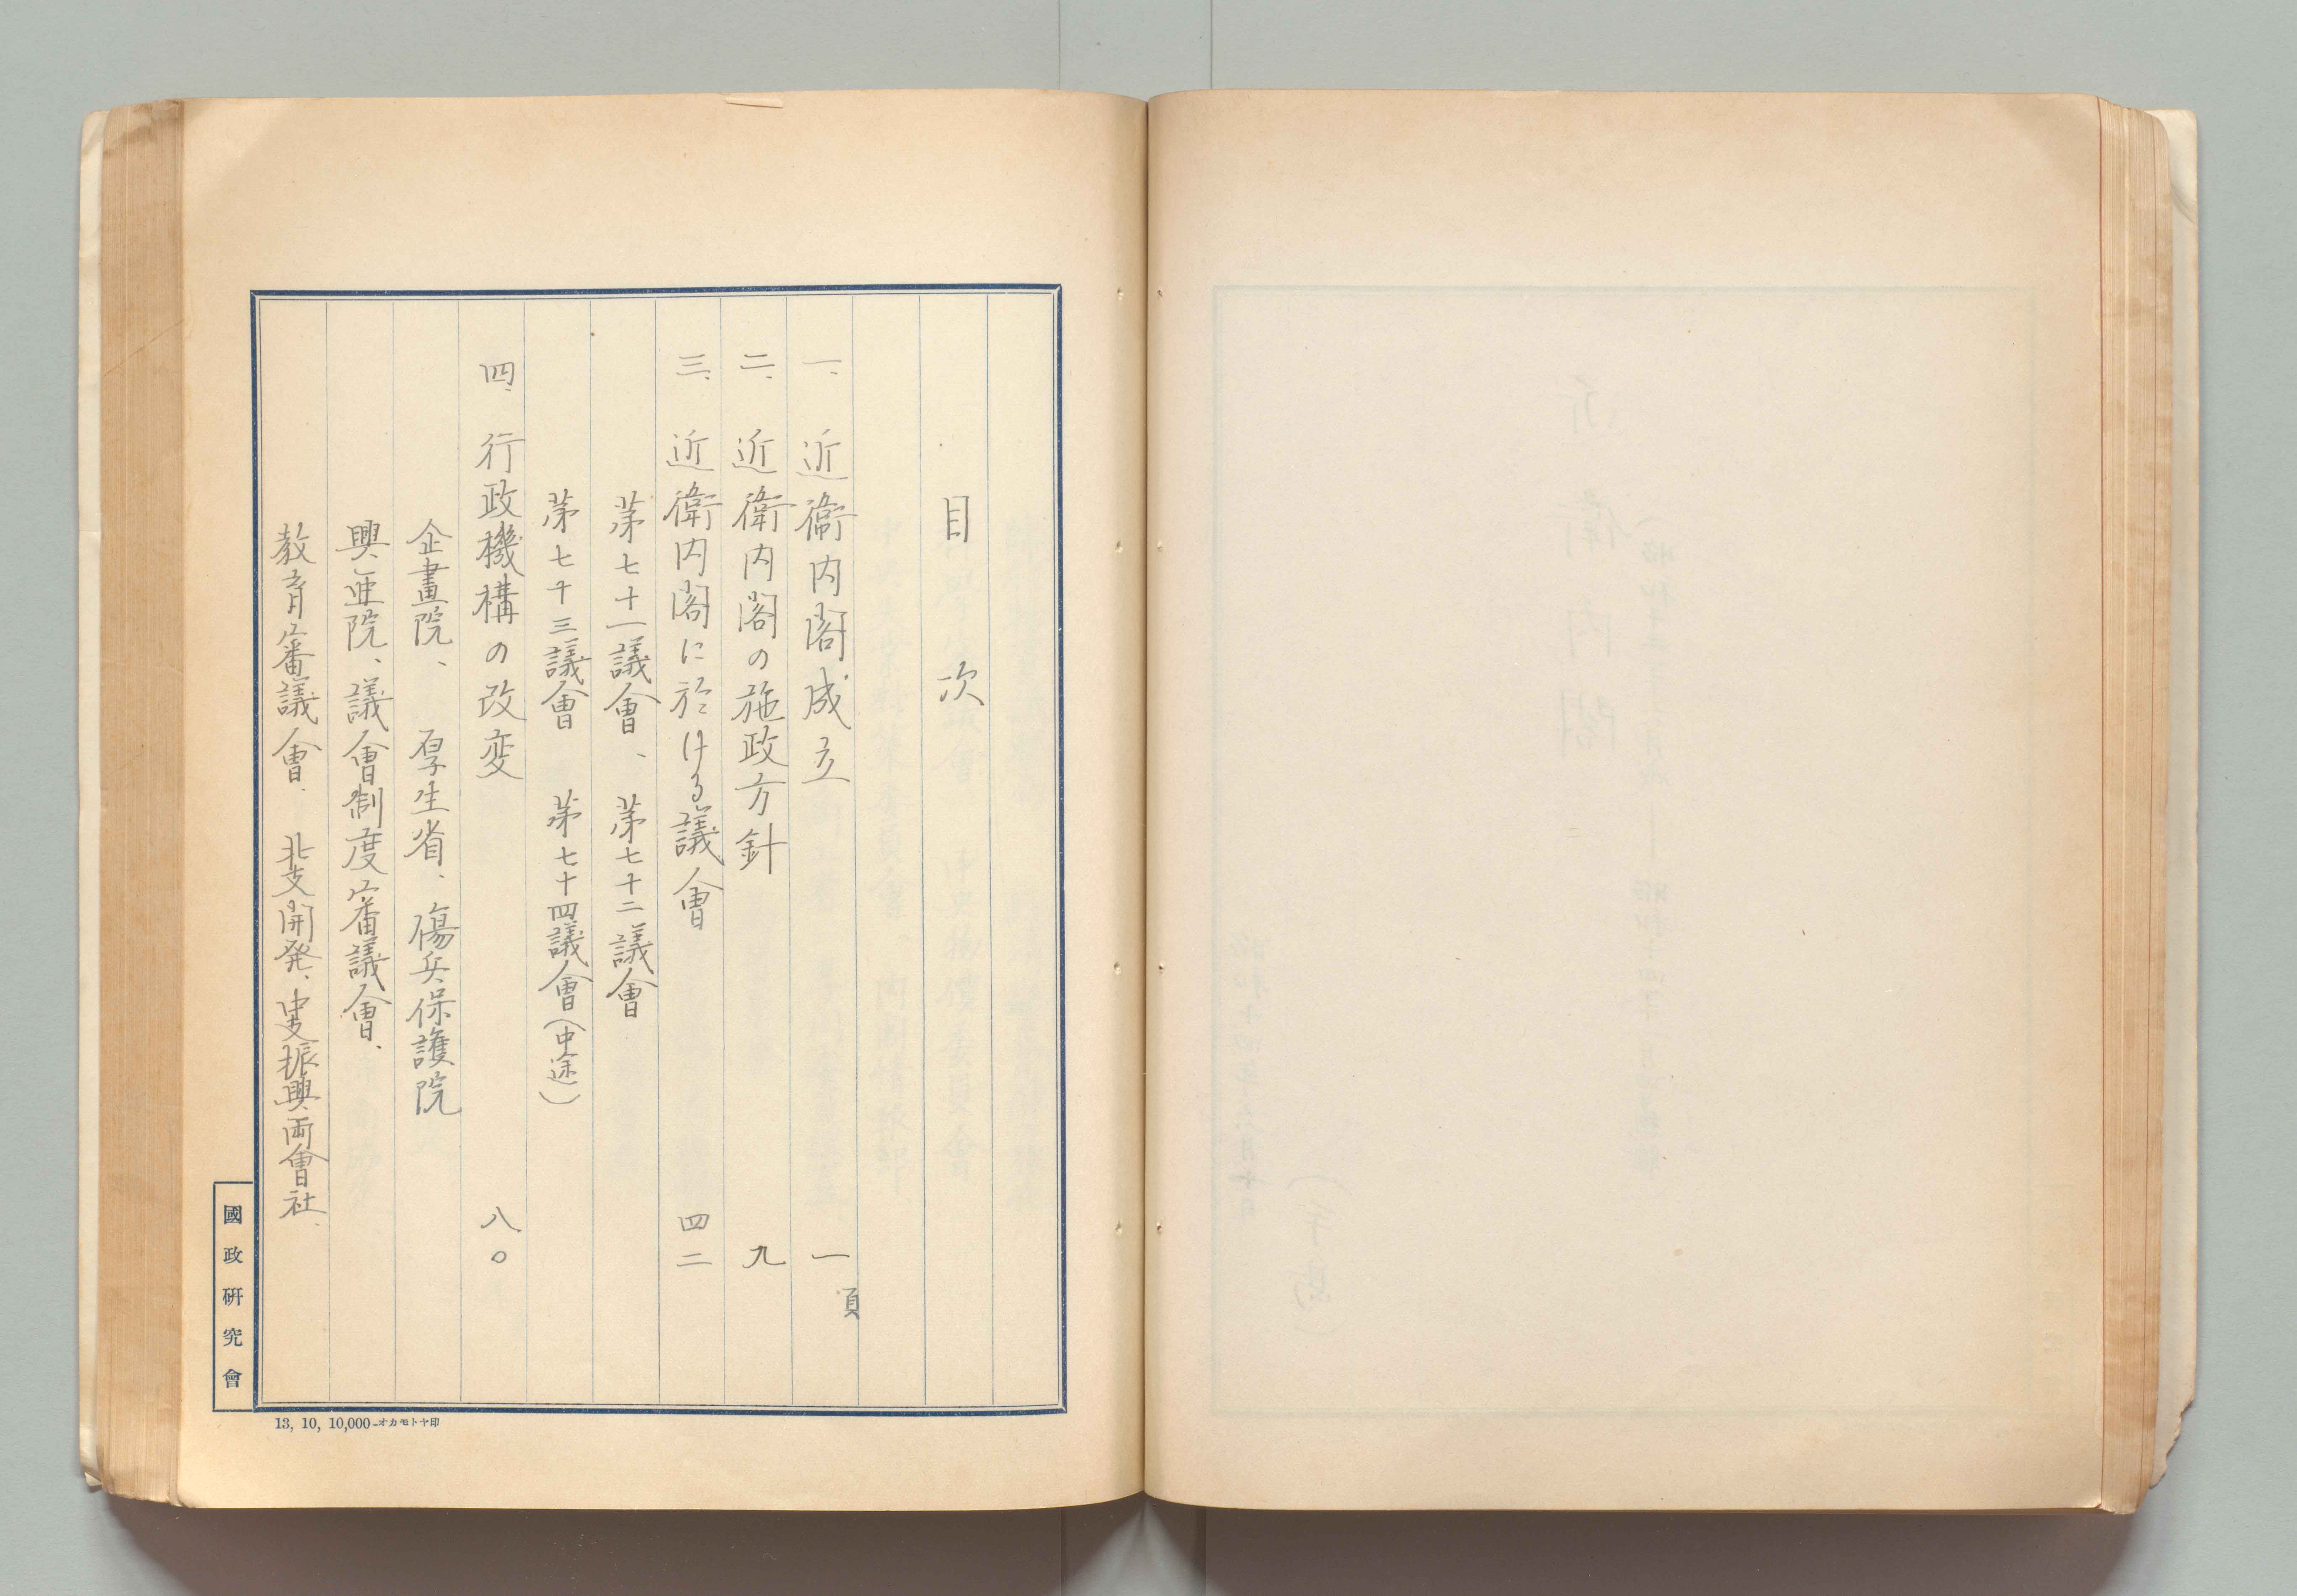 目次
一、近衞内閣成立 一頁
二、近衛内閣の施政方針 九
三、近衛内閣に於ける議會 四二
第七十一議會、第七十二議會
第七十三議會 第七十四議會(中途)
四、行政機構の改変 八〇
企畫院、厚生省、傷兵保護院
興亜院、議會制度審議會、
教育審議會、北支開発、中支振興両會社、
國政研究會
13, 10, 10,000-オカモトヤ印